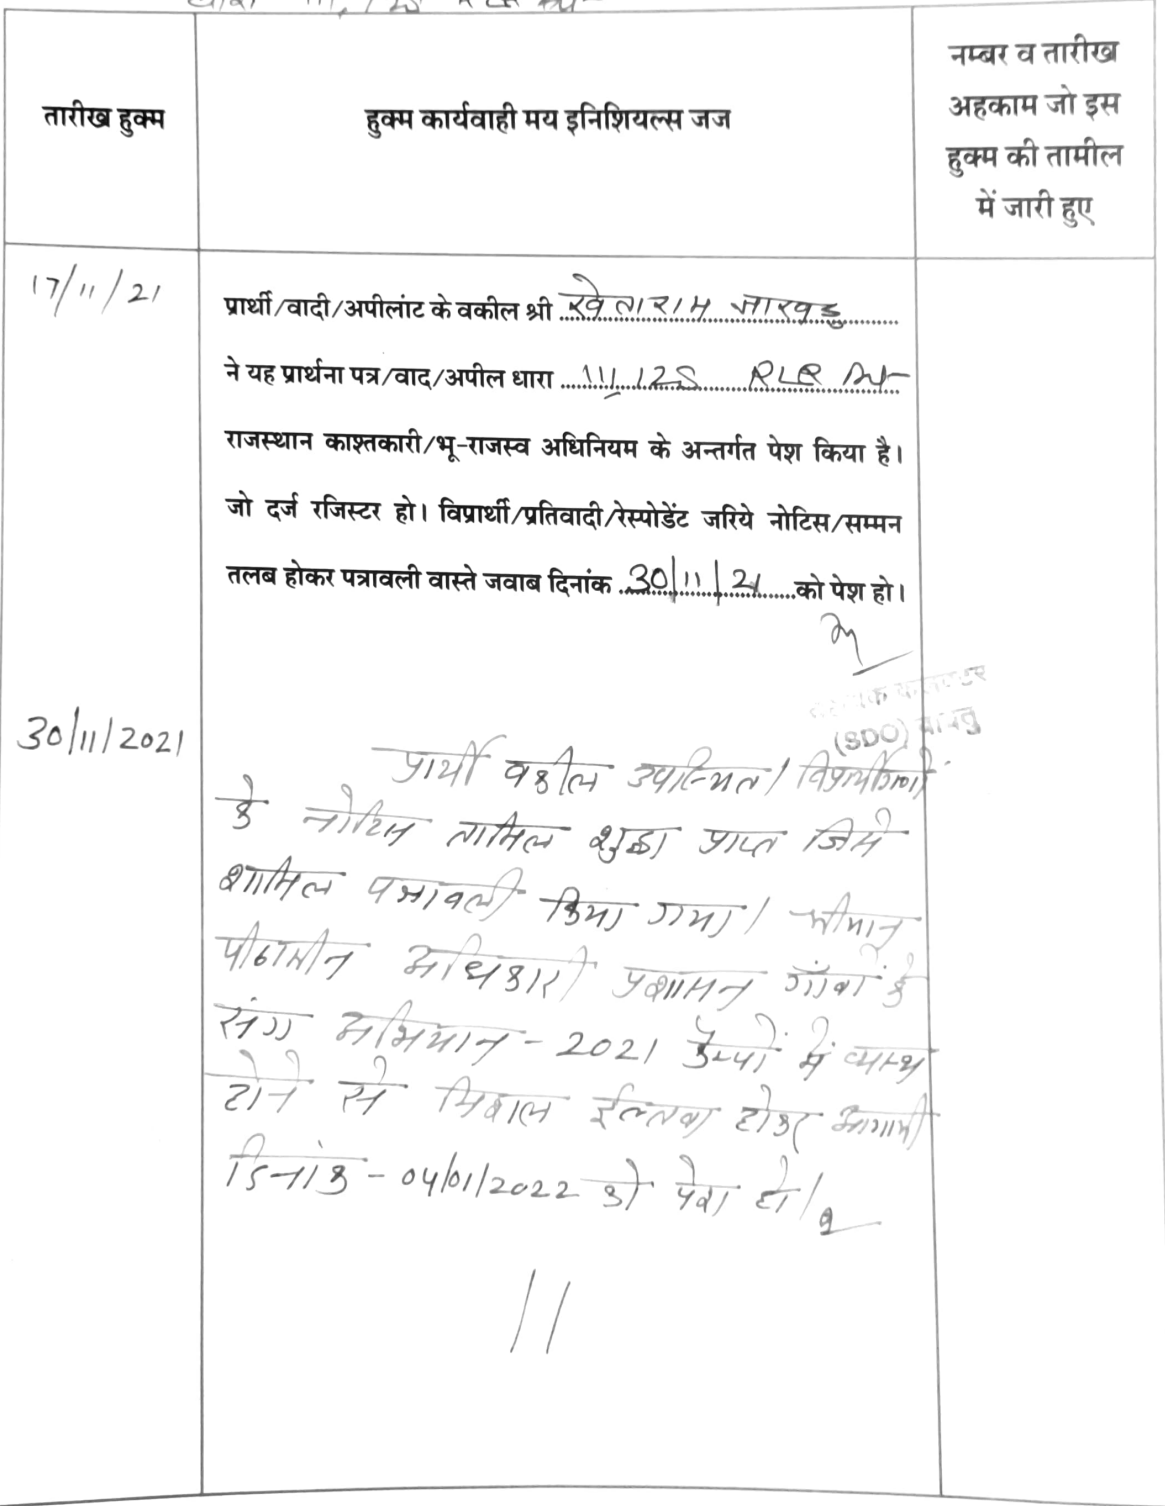 धारा 111, 125 RLR Act
तारीख हुक्म
हुक्म कार्यवाही मय इनिशियल्स जज
नम्बर व तारीख
अहकाम जो इस
हुक्म की तामील
में जारी हुए
17/11/21
प्रार्थी/वादी/अपीलांट के वकील श्री खेताराम जाखड़
ने यह प्रार्थना पत्र/वाद/अपील धारा 111, 125 RLR Act
राजस्थान काश्तकारी/भू-राजस्व अधिनियम के अन्तर्गत पेश किया है।
जो दर्ज रजिस्टर हो। विप्रार्थी/प्रतिवादी/रेस्पोडेंट जरिये नोटिस/सम्मन
तलब होकर पत्रावली वास्ते जवाब दिनांक 30/11/21 को पेश हो।
सहायक कलक्टर
(SDO) बायतु
30/11/2021
प्रार्थी वकील उपस्थित। विप्रार्थीगणों
के नोटिस तामिल शुदा प्राप्त जिसे
शामिल पत्रावली किया गया। श्रीमान्
पीठासीन अधिकारी प्रशासन गाँवों के
संग अभियान - 2021 कैम्पों में व्यस्थ
होने से मिशल ईल्तवा होकर आगामी
दिनांक - 04/01/2022 को पेश हो।